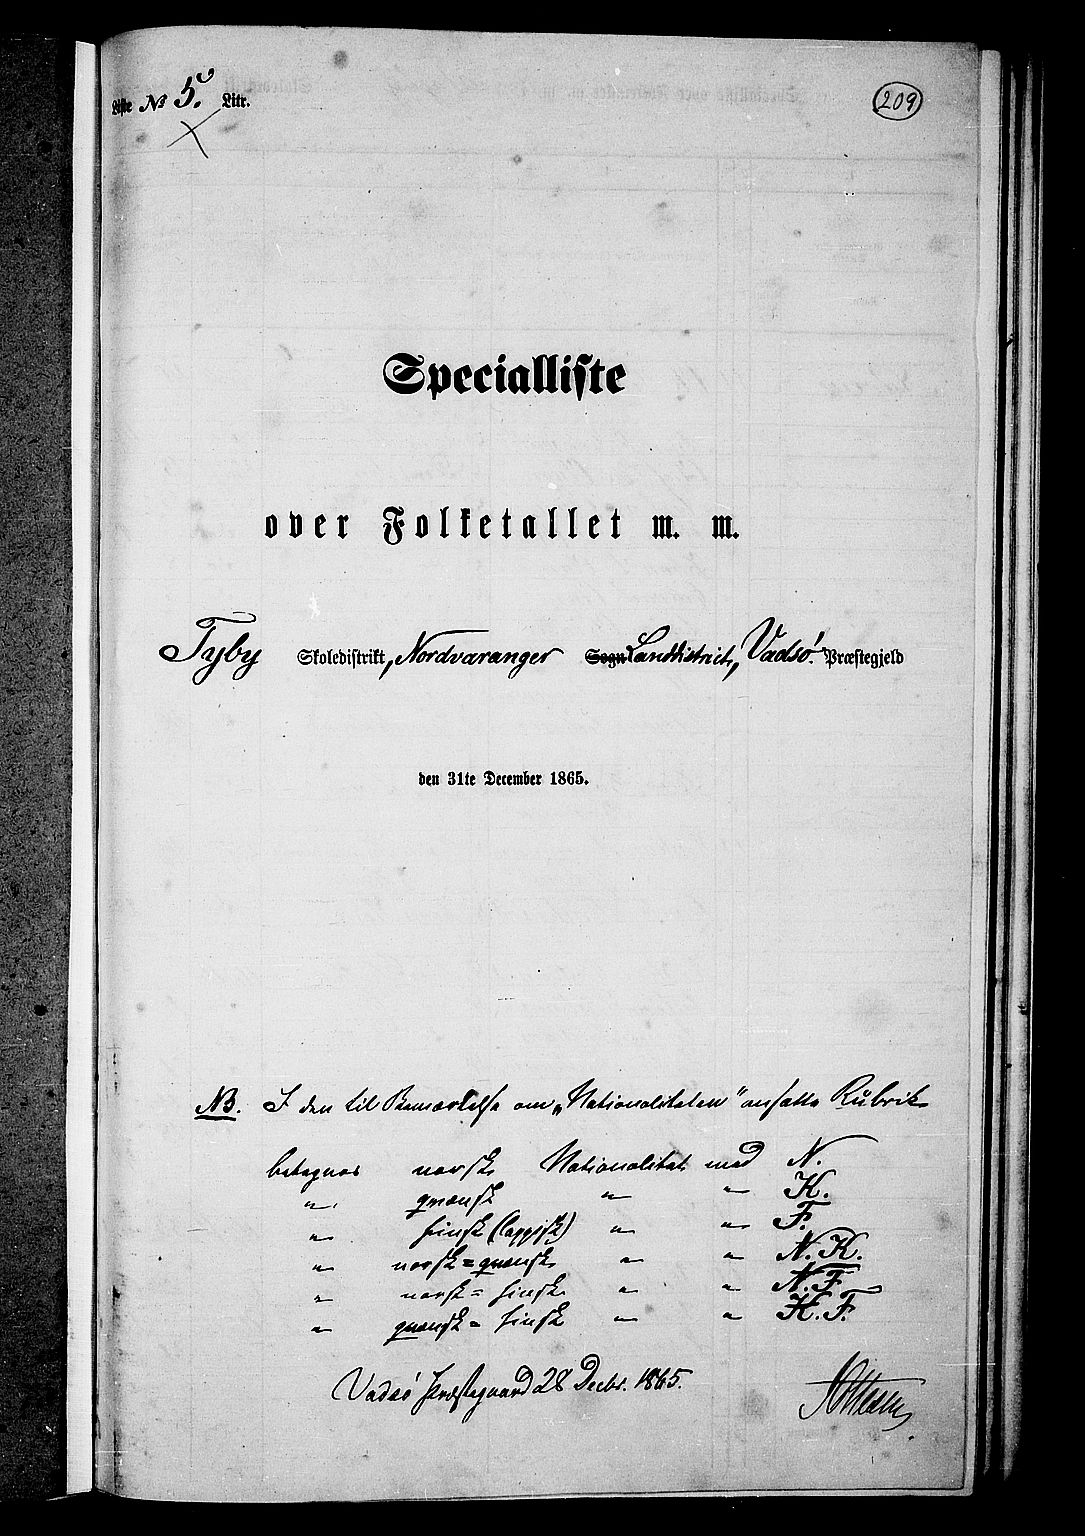 Liste № 5. Litr.
209
Specialliste
over Folketallet m. m.
Tyby Skoledistrikt, Nordvaranger Sogn Landdistrict, Vadsø Præstegjeld
den 31te December 1865.
NB. I den til Bemærkelse om „Nationaliteten" ansatte Rubrik
betegnes norsk Nationalitet med N.
„ qvænsk „ „ K.
„ finsk (lappisk) „ „ F.
„ norsk=qvænsk „ „ N.K.
„ norsk=finsk „ „ N.F.
„ qvænsk=finsk „ „ K.F.
Vadsø Præstegaard 28 Decbr. 1865.